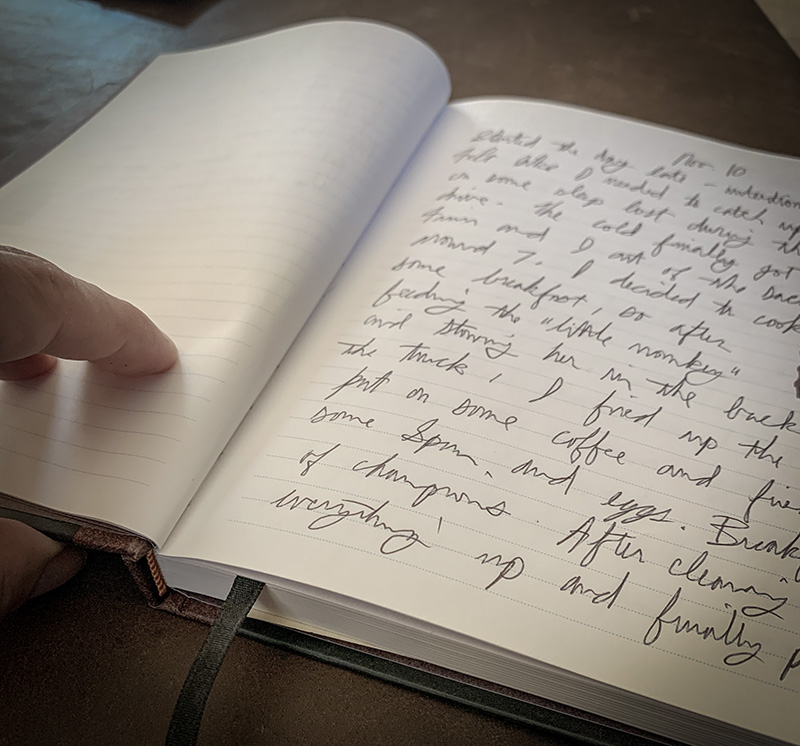 Nov 10
Started the day late – intention
felt like I needed to catch up
on some sleep lost during th
drive. The cold finally got
and I out of the sac
around 7. I decided to cook
some breakfast, so after
feeding the "little monkey"
and stowing her in the back
the truck, I fired up the
put on some coffee and frie
some Spam, and eggs. Break
of champions. After cleaning
everything up and finally p